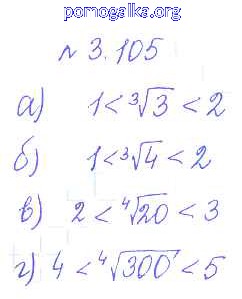 pomogalka.org
№ 3.105
а) 1 < ³√3 < 2
б) 1 < ³√4 < 2
в) 2 < ⁴√20 < 3
г) 4 < ⁴√300 < 5